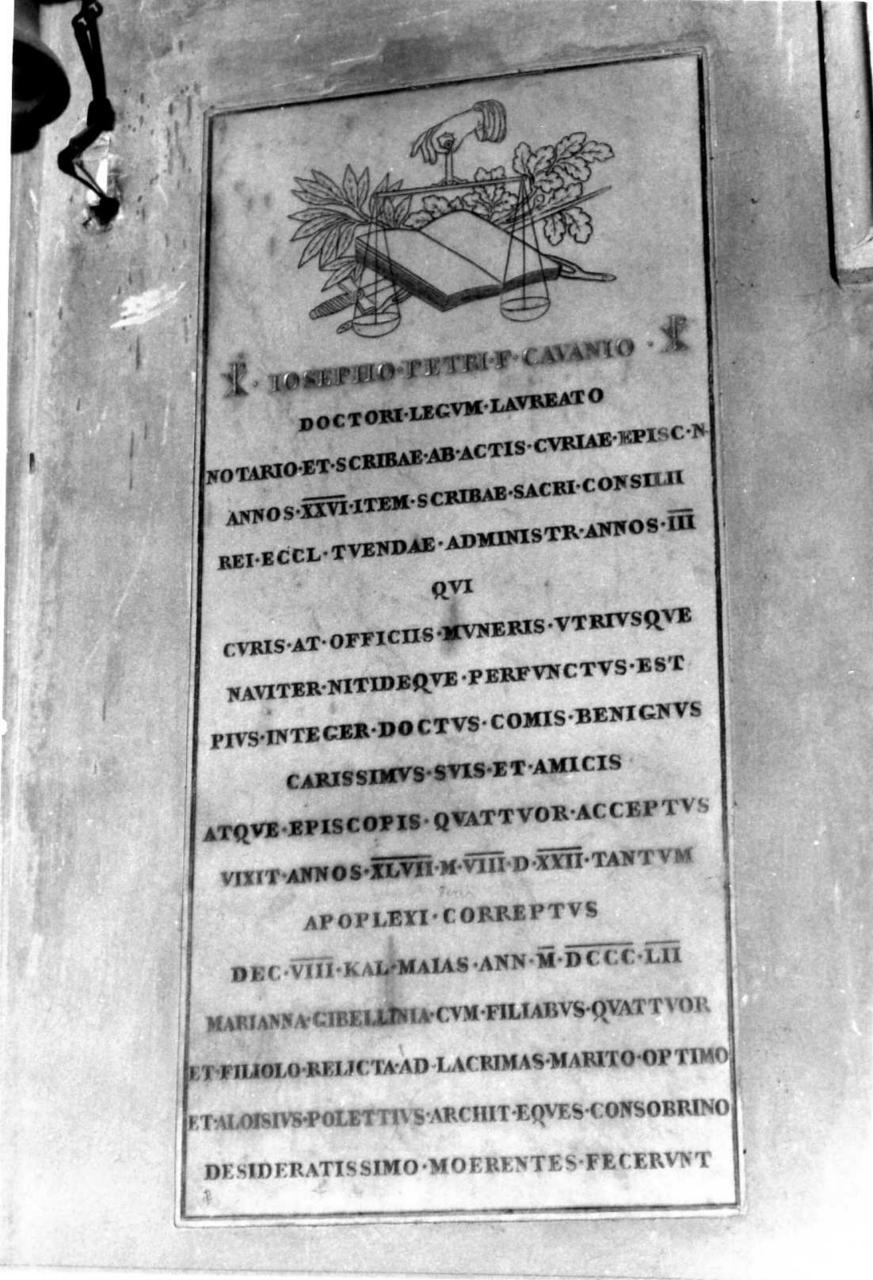 ☧ · IOSEPHO · PETRI · F · CAVANIO · ☧
DOCTORI · LEGVM · LAVREATO
NOTARIO · ET · SCRIBAE · AB · ACTIS · CVRIAE · EPISC · N ·
ANNOS · X̅X̅V̅I̅ · ITEM · SCRIBAE · SACRI · CONSILII
REI · ECCL · TVENDAE · ADMINISTR · ANNOS · I̅I̅I̅
QVI
CVRIS · AT · OFFICIIS · MVNERIS · VTRIVSQVE
NAVITER · NITIDEQVE · PERFVNCTVS · EST
PIVS · INTEGER · DOCTVS · COMIS · BENIGNVS
CARISSIMVS · SVIS · ET · AMICIS
ATQVE · EPISCOPIS · QVATTVOR · ACCEPTVS
VIXIT · ANNOS · X̅L̅V̅I̅I̅ · M · V̅I̅I̅I̅ · D · X̅X̅I̅I̅ · TANTVM
APOPLEXI · CORREPTVS
DEC · V̅I̅I̅I̅ · KAL · MAIAS · ANN · M̅ · D̅C̅C̅C̅ · L̅I̅I̅
MARIANNA · GIBELLINIA · CVM · FILIABVS · QVATTVOR
ET · FILIOLO · RELICTA · AD · LACRIMAS · MARITO · OPTIMO
ET · ALOISIVS · POLETTIVS · ARCHIT · EQVES · CONSOBRINO
DESIDERATISSIMO · MOERENTES · FECERVNT